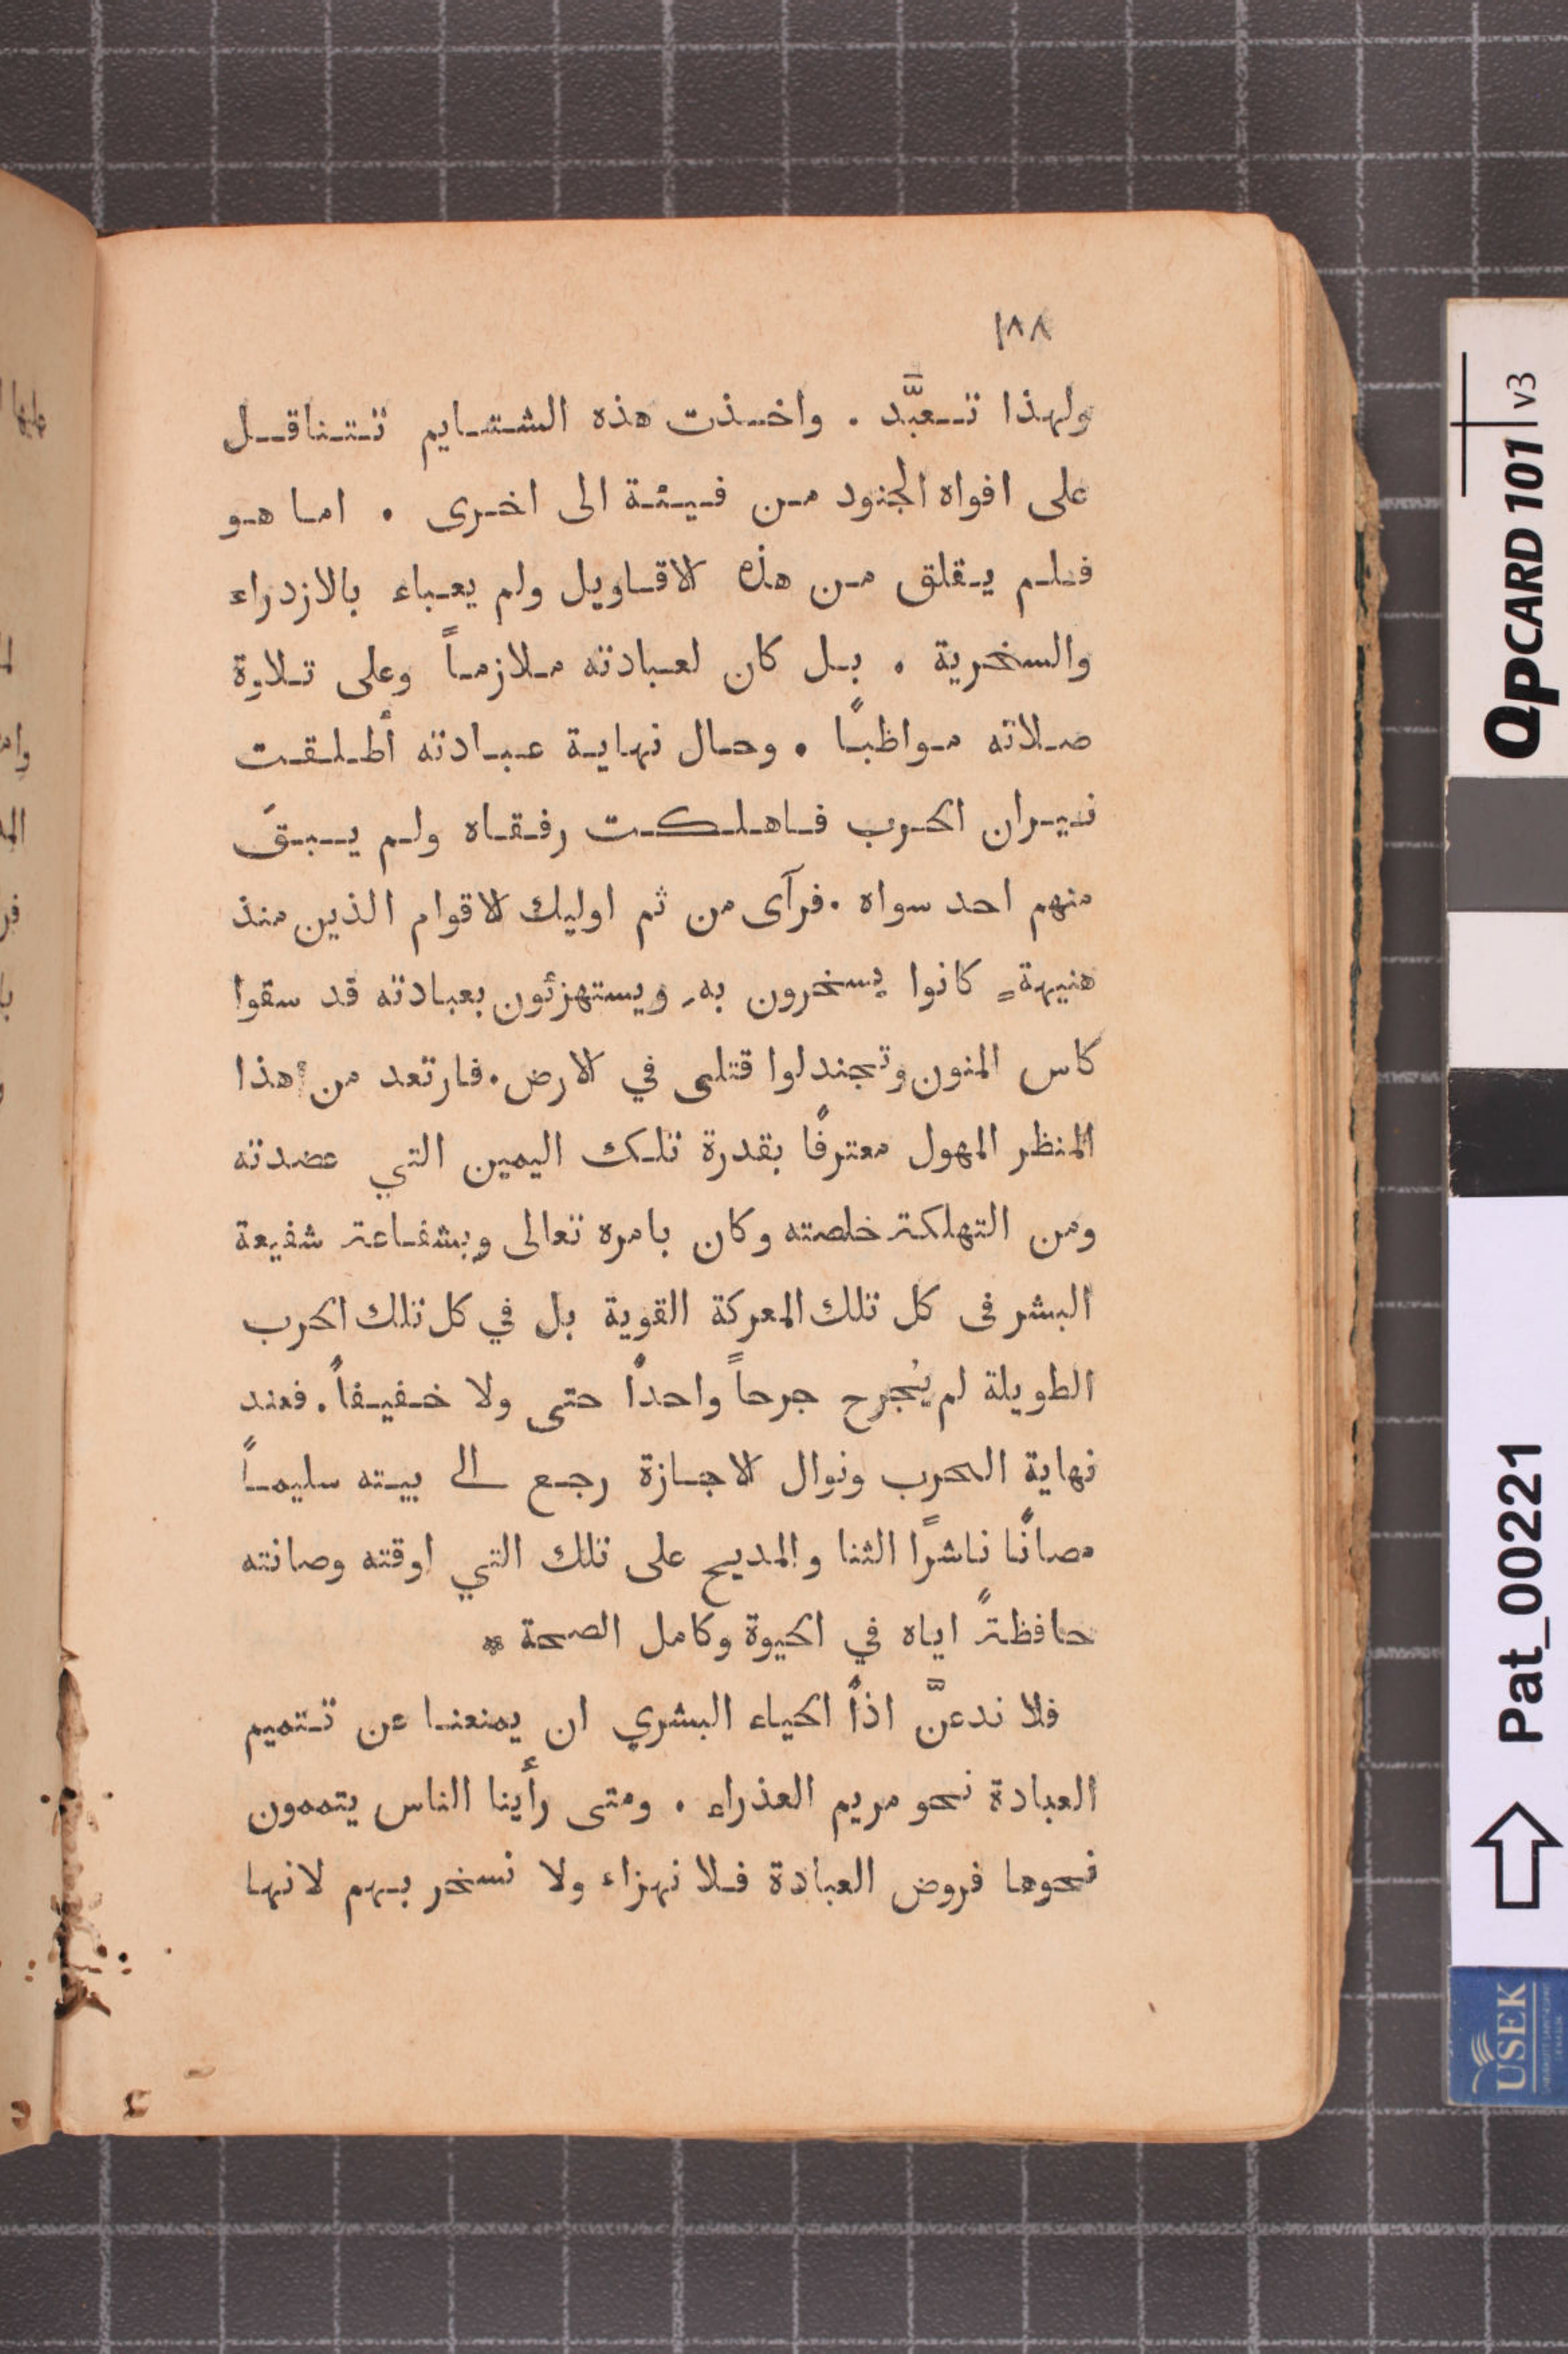 ١٨٨
ولهذا تعبَّد . واخذت هذه الشتايم تتناقل
على افواه الجنود من فيئة الى اخرى . اما هو
فلم يقلق من هذه الاقاويل ولم يعباء بالازدراء
والسخرية . بل كان لعبادته ملازماً وعلى تلاوة
صلاته مواظبًا . وحال نهاية عبادته أطلقت
نيران الحرب فاهلكت رفقاه ولم يبقَ
منهم احد سواه . فرآى من ثم اوليك الاقوام الذين منذ
هنيهةٍ كانوا يسخرون بهِ ويستهزئون بعبادته قد سقوا
كاس المنون وتجندلوا قتلى في الارض . فارتعد من هذا
المنظر المهول معترفًا بقدرة تلك اليمين التي عضدته
ومن التهلكة خلصته وكان بامره تعالى وبشفاعة شفيعة
البشر فى كل تلك المعركة القوية بل في كل تلك الحرب
الطويلة لم يُجرح جرحاً واحداً حتى ولا خفيفاً . فعند
نهاية الحرب ونوال الاجازة رجع الى بيته سليماً
مصانًا ناشرًا الثنا والمديح على تلك التي اوقته وصانته
حافظةً اياه في الحيوة وكامل الصحة *
فلا ندعنَّ اذاً الحياء البشري ان يمنعنا عن تتميم
العبادة نحو مريم العذراء . ومتى رأينا الناس يتممون
نحوها فروض العبادة فلا نهزاء ولا نسخر بهم لانها
QPCARD 101 v3
Pat_00221
USEK